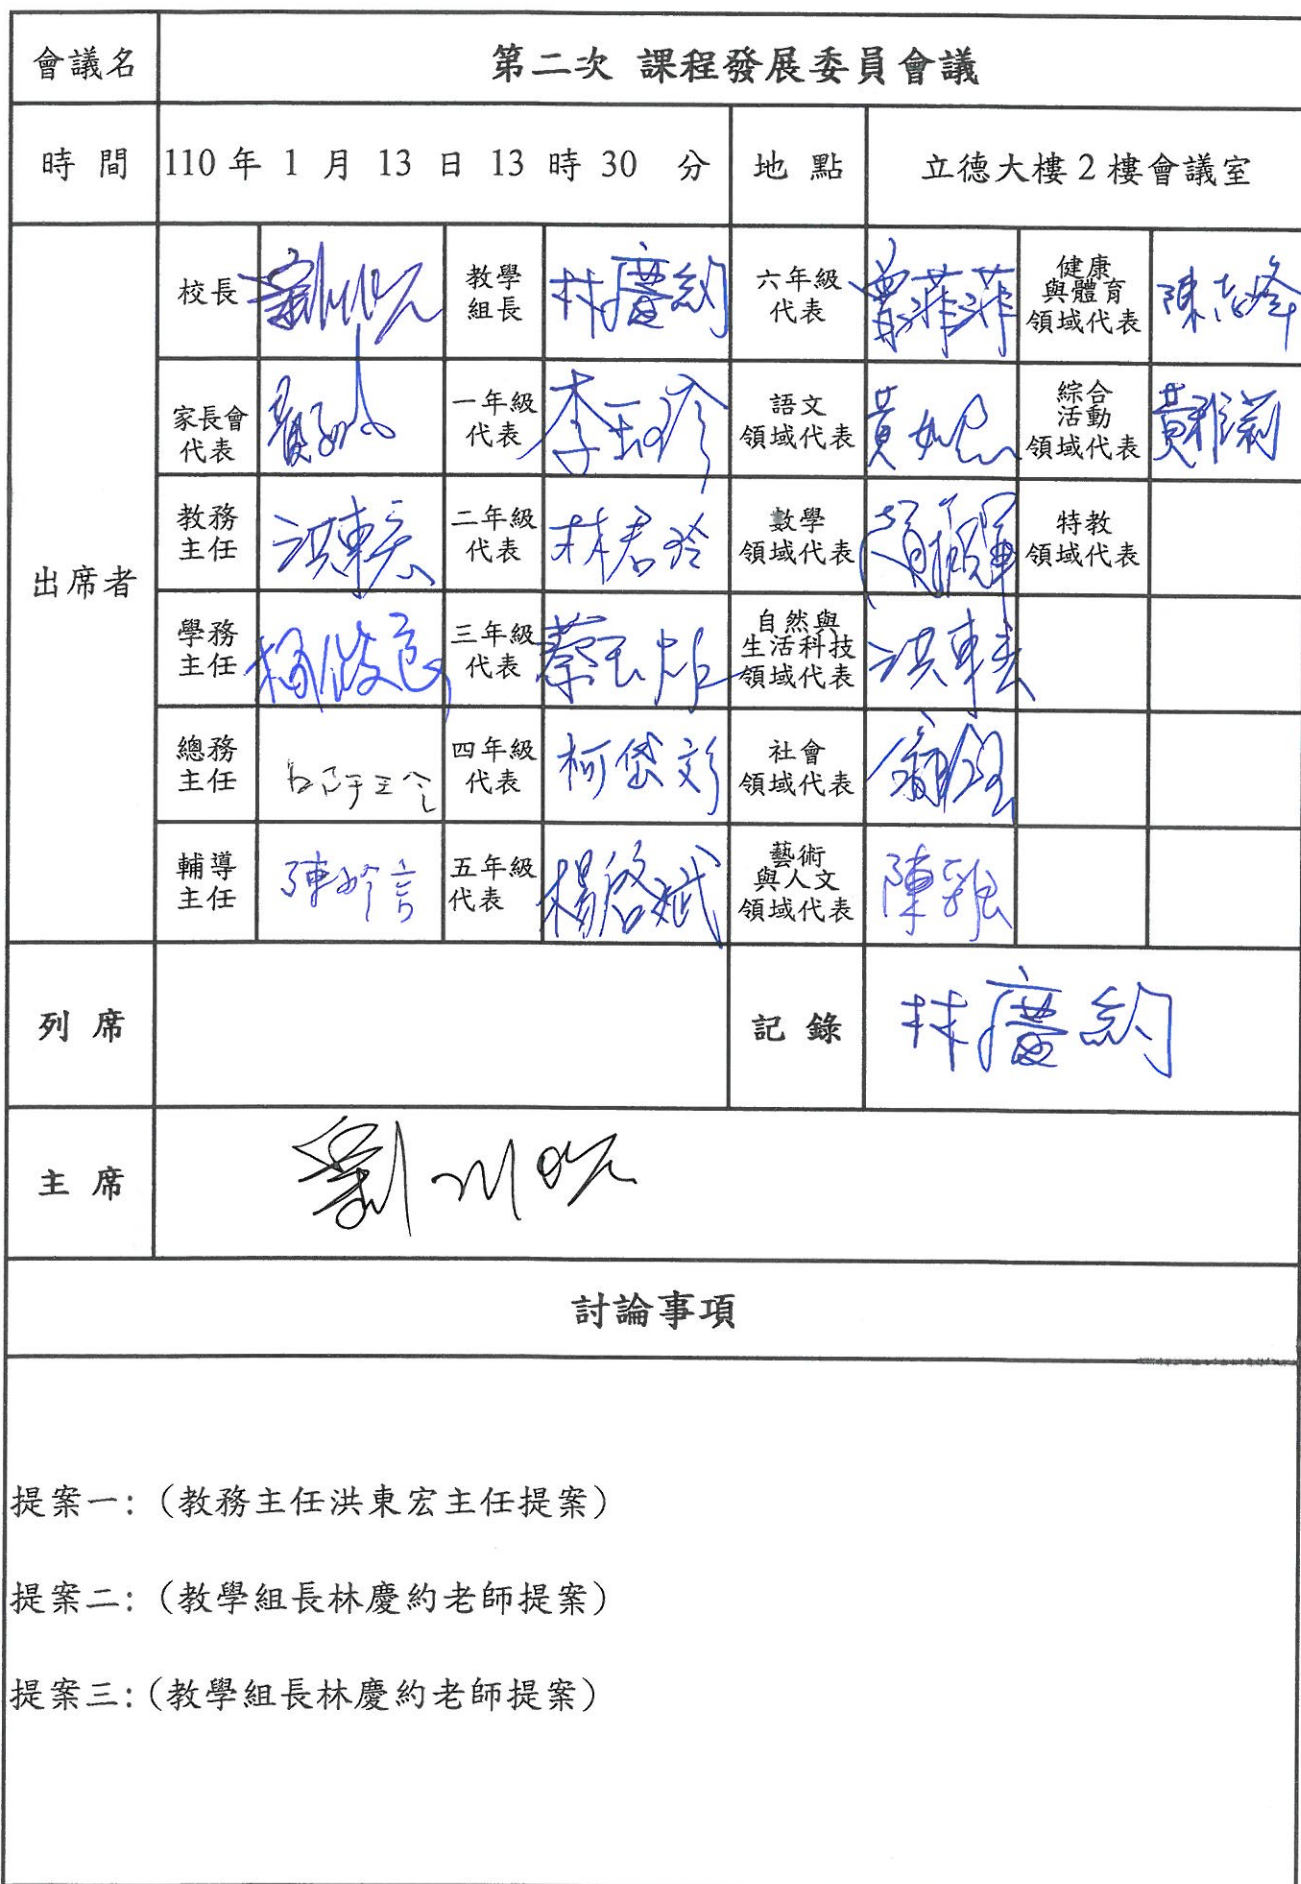 會議名 第二次 課程發展委員會議
時 間 110 年 1 月 13 日 13 時 30 分 地 點 立德大樓 2 樓會議室
出席者
校長 教學組長 林慶約 六年級代表 健康與體育領域代表
家長會代表 一年級代表 語文領域代表 綜合活動領域代表 黃雅莉
教務主任 洪東宏 二年級代表 林君玲 數學領域代表 特教領域代表
學務主任 三年級代表 自然與生活科技領域代表 洪東宏
總務主任 四年級代表 柯岱彣 社會領域代表
輔導主任 五年級代表 楊啓斌 藝術與人文領域代表
列 席 記 錄 林慶約
主 席
討論事項
提案一:（教務主任洪東宏主任提案）
提案二:（教學組長林慶約老師提案）
提案三:（教學組長林慶約老師提案）